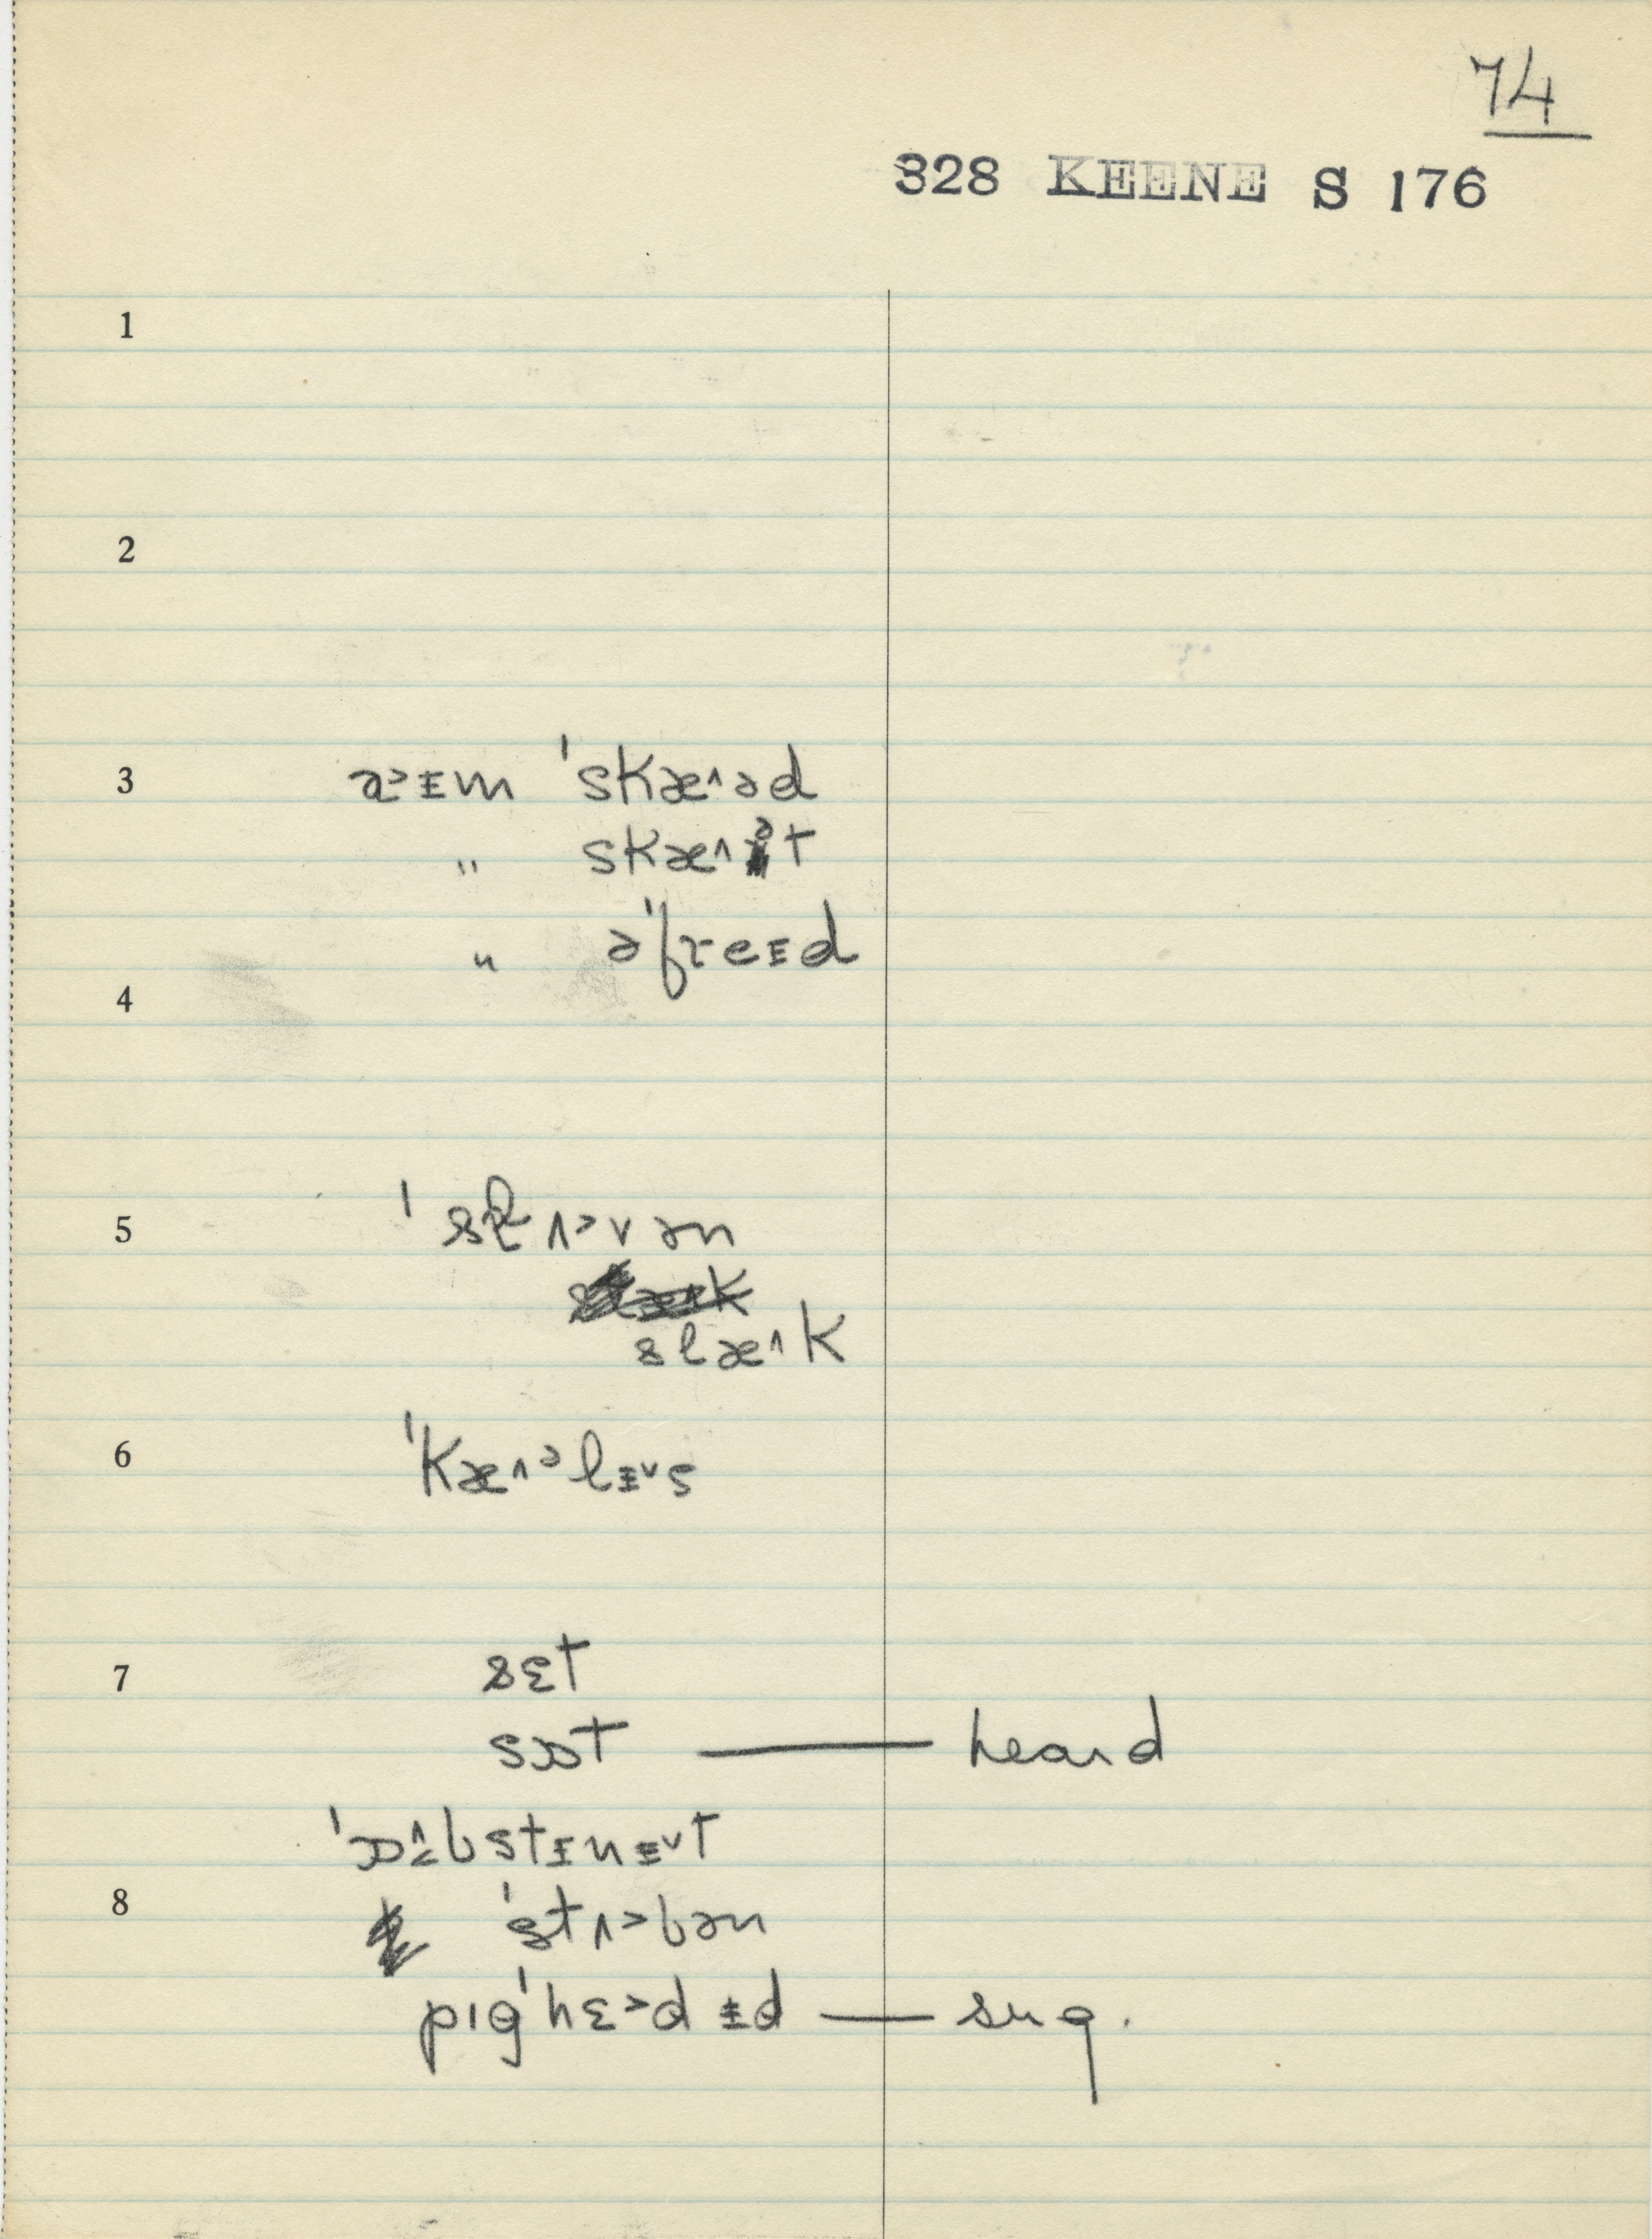 74
328 KEENE S 176
1
2
3 a˃ɪm ˈskæ˄əd
" skæ˄ət
" əˈfreɪd
4
5 ˈslʌ˃vən
slæ˄k
6 ˈkæ˄əlɪ˅s
7 sɛt
sɒt — heard
ˈɒ˄bstɪnɪ˅t
8 ˈstʌ˃bən
pɪgˈhɛ˃dɪd — sug.